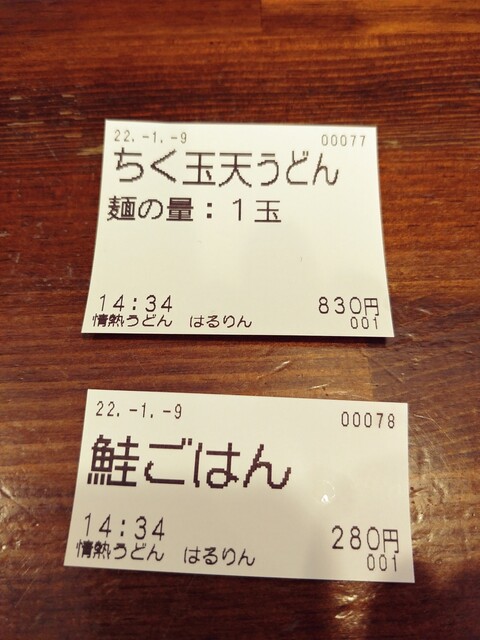 22.-1.-9 00077
ちく玉天うどん
麺の量：1玉
14:34 830円
情熱うどん はるりん 001
22.-1.-9 00078
鮭ごはん
14:34 280円
情熱うどん はるりん 001